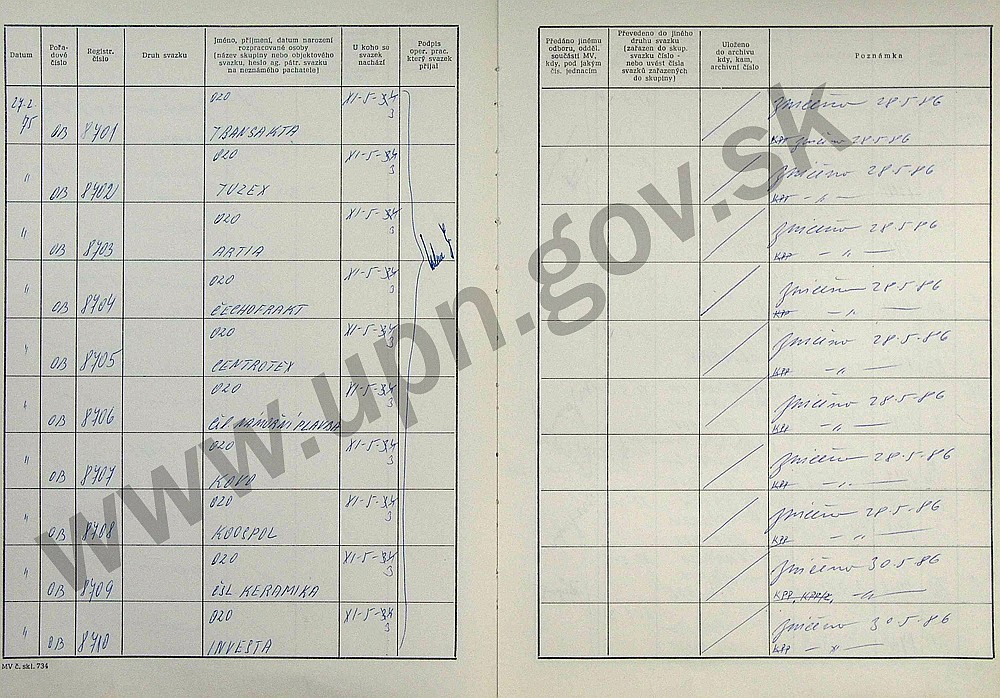 Datum
Pořadové číslo
Registr. číslo
Druh svazku
Jméno, příjmení, datum narození rozpracované osoby (název skupiny nebo objektového svazku, heslo ag. pátr. svazku na neznámého pachatele)
U koho se svazek nachází
Podpis oper. prac. který svazek přijal
Předáno jinému odboru, odděl. součásti MV, kdy, pod jakým čís. jednacím
Převedeno do jiného druhu svazku (zařazen do skup. svazku číslo - nebo uvést čísla svazků zařazených do skupiny)
Uloženo do archivu kdy, kam, archivní číslo
Poznámka
27.2. 75 OB 8701 020 TRANSAKTA XI-5-34 3 zničeno 28.5.86
KPP zničeno 28.5.86
" OB 8702 020 TUZEX XI-5-34 3 zničeno 28.5.86
KPP - " -
" OB 8703 020 ARTIA XI-5-34 3 zničeno 28.5.86
KPP - " -
" OB 8704 020 ČECHOFRAKT XI-5-34 3 zničeno 28.5.86
KPP - " -
" OB 8705 020 CENTROTEX XI-5-34 3 zničeno 28.5.86
KPP - " -
" OB 8706 020 ČSL NÁMOŘNÍ PLAVBA XI-5-34 3 zničeno 28.5.86
KPP - " -
" OB 8707 020 KOVO XI-5-34 3 zničeno 28.5.86
KPP - " -
" OB 8708 020 KOOSPOL XI-5-34 3 zničeno 28.5.86
KPP - " -
" OB 8709 020 ČSL KERAMIKA XI-5-34 3 zničeno 30.5.86
KPP, KPP/2, - " -
" OB 8710 020 INVESTA XI-5-34 3 zničeno 30.5.86
KPP - " -
MV č. skl. 734
www.upn.gov.sk